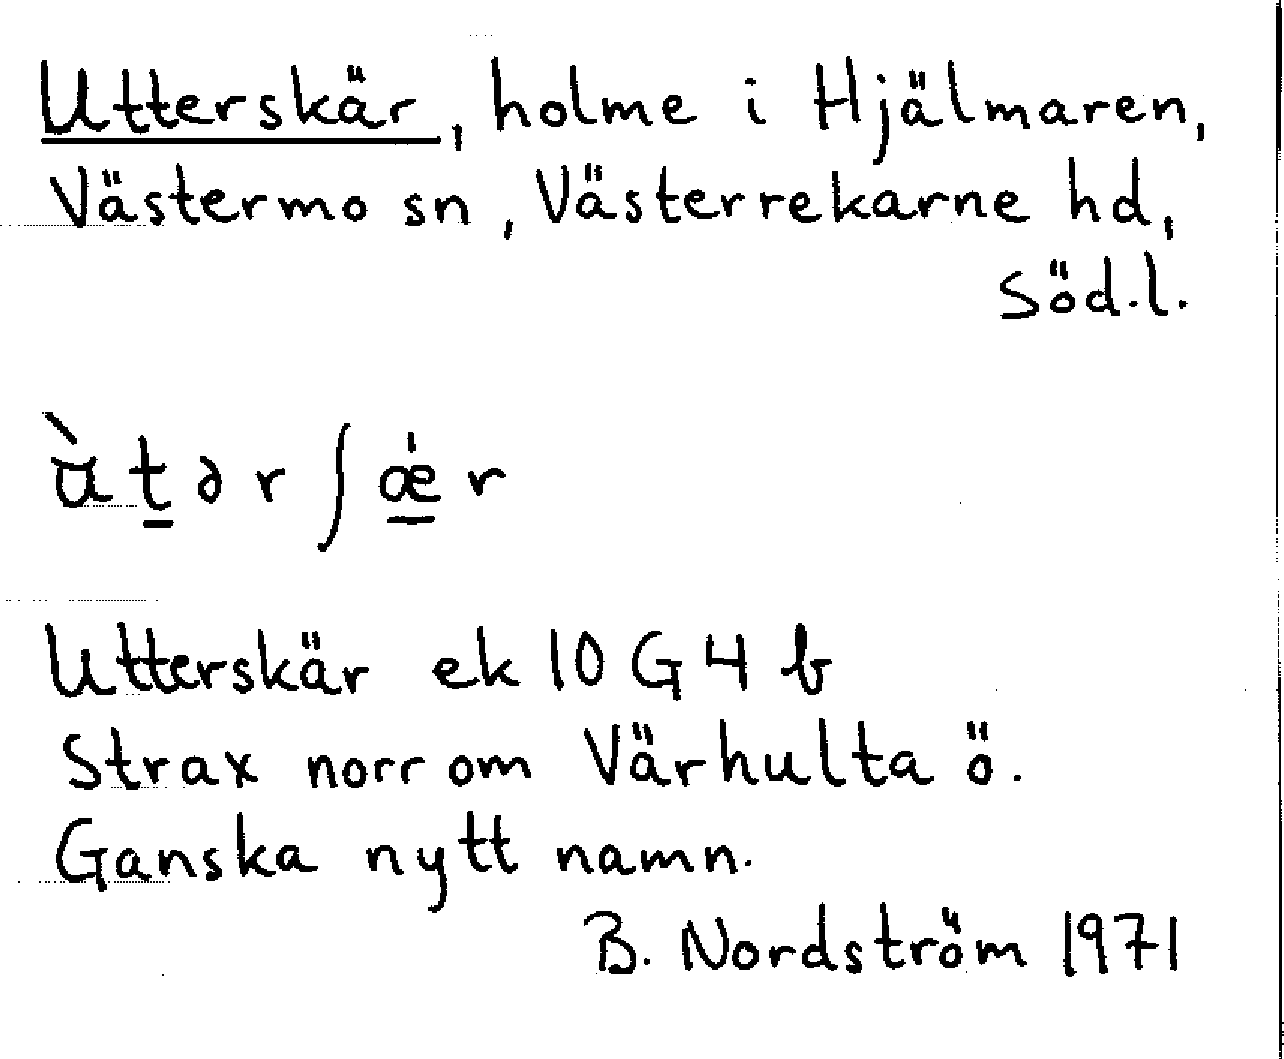 Utterskär, holme i Hjälmaren,
Västermo sn, Västerrekarne hd,
Söd.l.
Utterskär ek 10 G 4 b
Strax norr om Värhulta ö.
Ganska nytt namn.
B. Nordström 1971